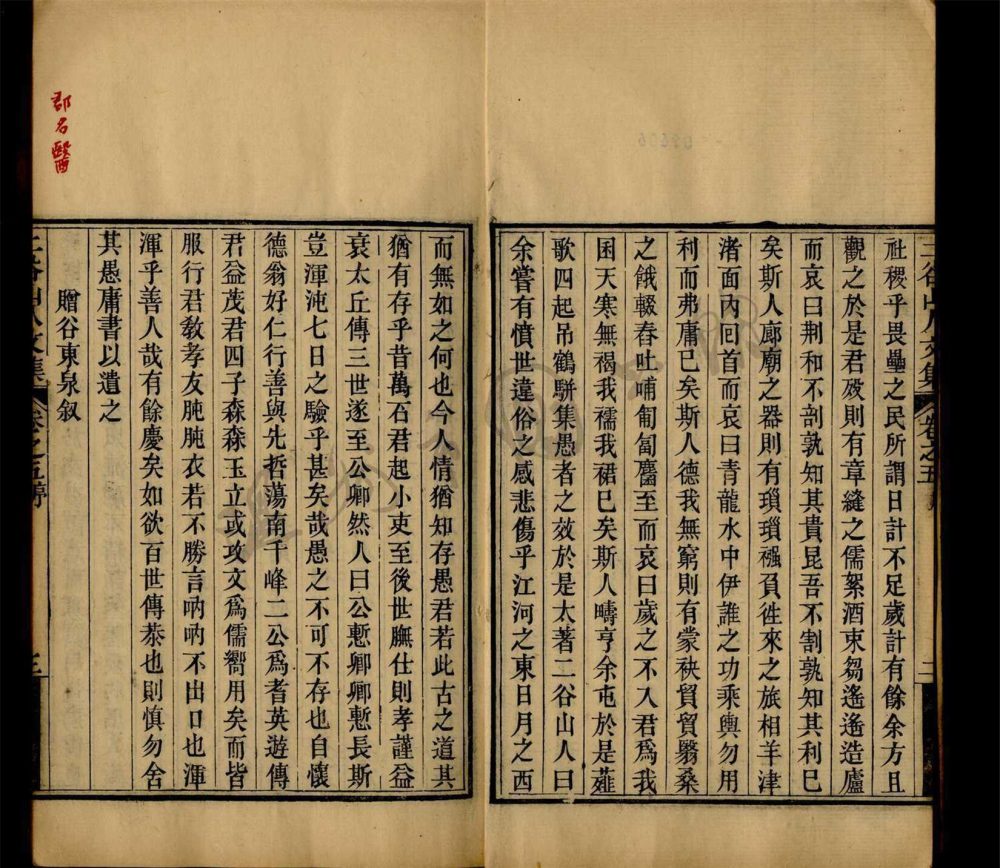 社稷乎畏壘之民所謂日計不足歲計有餘余方且
觀之於是君歿則有章縫之儒絮酒束芻遙遙造廬
而哀曰荆和不剖孰知其貴昆吾不割孰知其利已
矣斯人廊廟之器則有瑣瑣襁負徃來之旅相羊津
渚面內回首而哀曰青龍水中伊誰之功乘輿勿用
利而弗庸已矣斯人德我無窮則有蒙袂貿貿翳桑
之餓輟舂吐哺匍匐麕至而哀曰歲之不入君爲我
囷天寒無褐我襦我裙已矣斯人疇亨余屯於是薤
歌四起吊鶴駢集愚者之效於是太著二谷山人曰
余嘗有憤世違俗之感悲傷乎江河之東日月之西
而無如之何也今人情猶知存愚君若此古之道其
猶有存乎昔萬石君起小吏至後世膴仕則孝謹益
衰太丘傳三世遂至公卿然人曰公慙卿卿慙長斯
豈渾沌七日之驗乎甚矣哉愚之不可不存也自懷
德翁好仁行善與先哲蕩南千峰二公爲耆英遊傳
君益茂君四子森森玉立或攻文爲儒嚮用矣而皆
服行君敎孝友肫肫衣若不勝言吶吶不出口也渾
渾乎善人哉有餘慶矣如欲百世傳恭也則慎勿舍
其愚庸書以遺之
贈谷東泉叙
二谷山人文集
卷之五
二
三
郡名醫